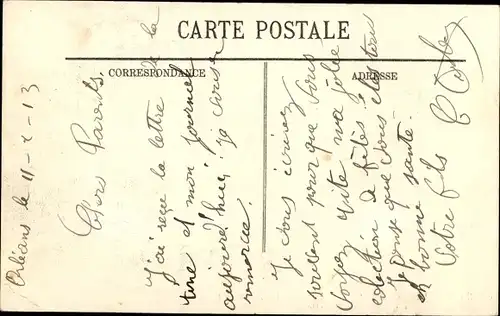 CARTE POSTALE
CORRESPONDANCE
ADRESSE
Orléans le 11-2-13
Chers Parents.
J'ai reçu la lettre de la
tine et mon journal
aujourd'hui je
remercie.
Je vous écrirez
souvent pour que vous
voyez vite ma jolie
colection de fêtes?
Je pense que vous êtes
en bonne santé.
Votre fils